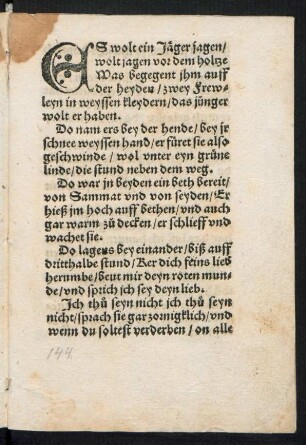 ES wolt ein Jäger jagen/
wolt jagen vor dem holtze
Was begegent jhm auff
der heyden/zwey Frew-
leyn in weyssen kleydern/das jünger
wolt er haben.
Do nam ers bey der hende/bey jr
schnee weyssen hand/er füret sie also
geschwinde/wol vnter eyn grüne
linde/die stund neben dem weg.
Do war jn beyden ein beth bereit/
von Sammat vnd von seyden/Er
hieß jm hoch auff bethen/vnd auch
gar warm zů decken/er schlieff vnd
wachet sie.
Do lagens bey einander/biß auff
dritthalbe stund/Ker dich feins lieb
herumbe/beut mir deyn roten mun-
de/vnd sprich ich sey deyn lieb.
Jch thů seyn nicht ich thů seyn
nicht/sprach sie gar zornigklich/vnd
wenn du soltest verderben/on alle
144.